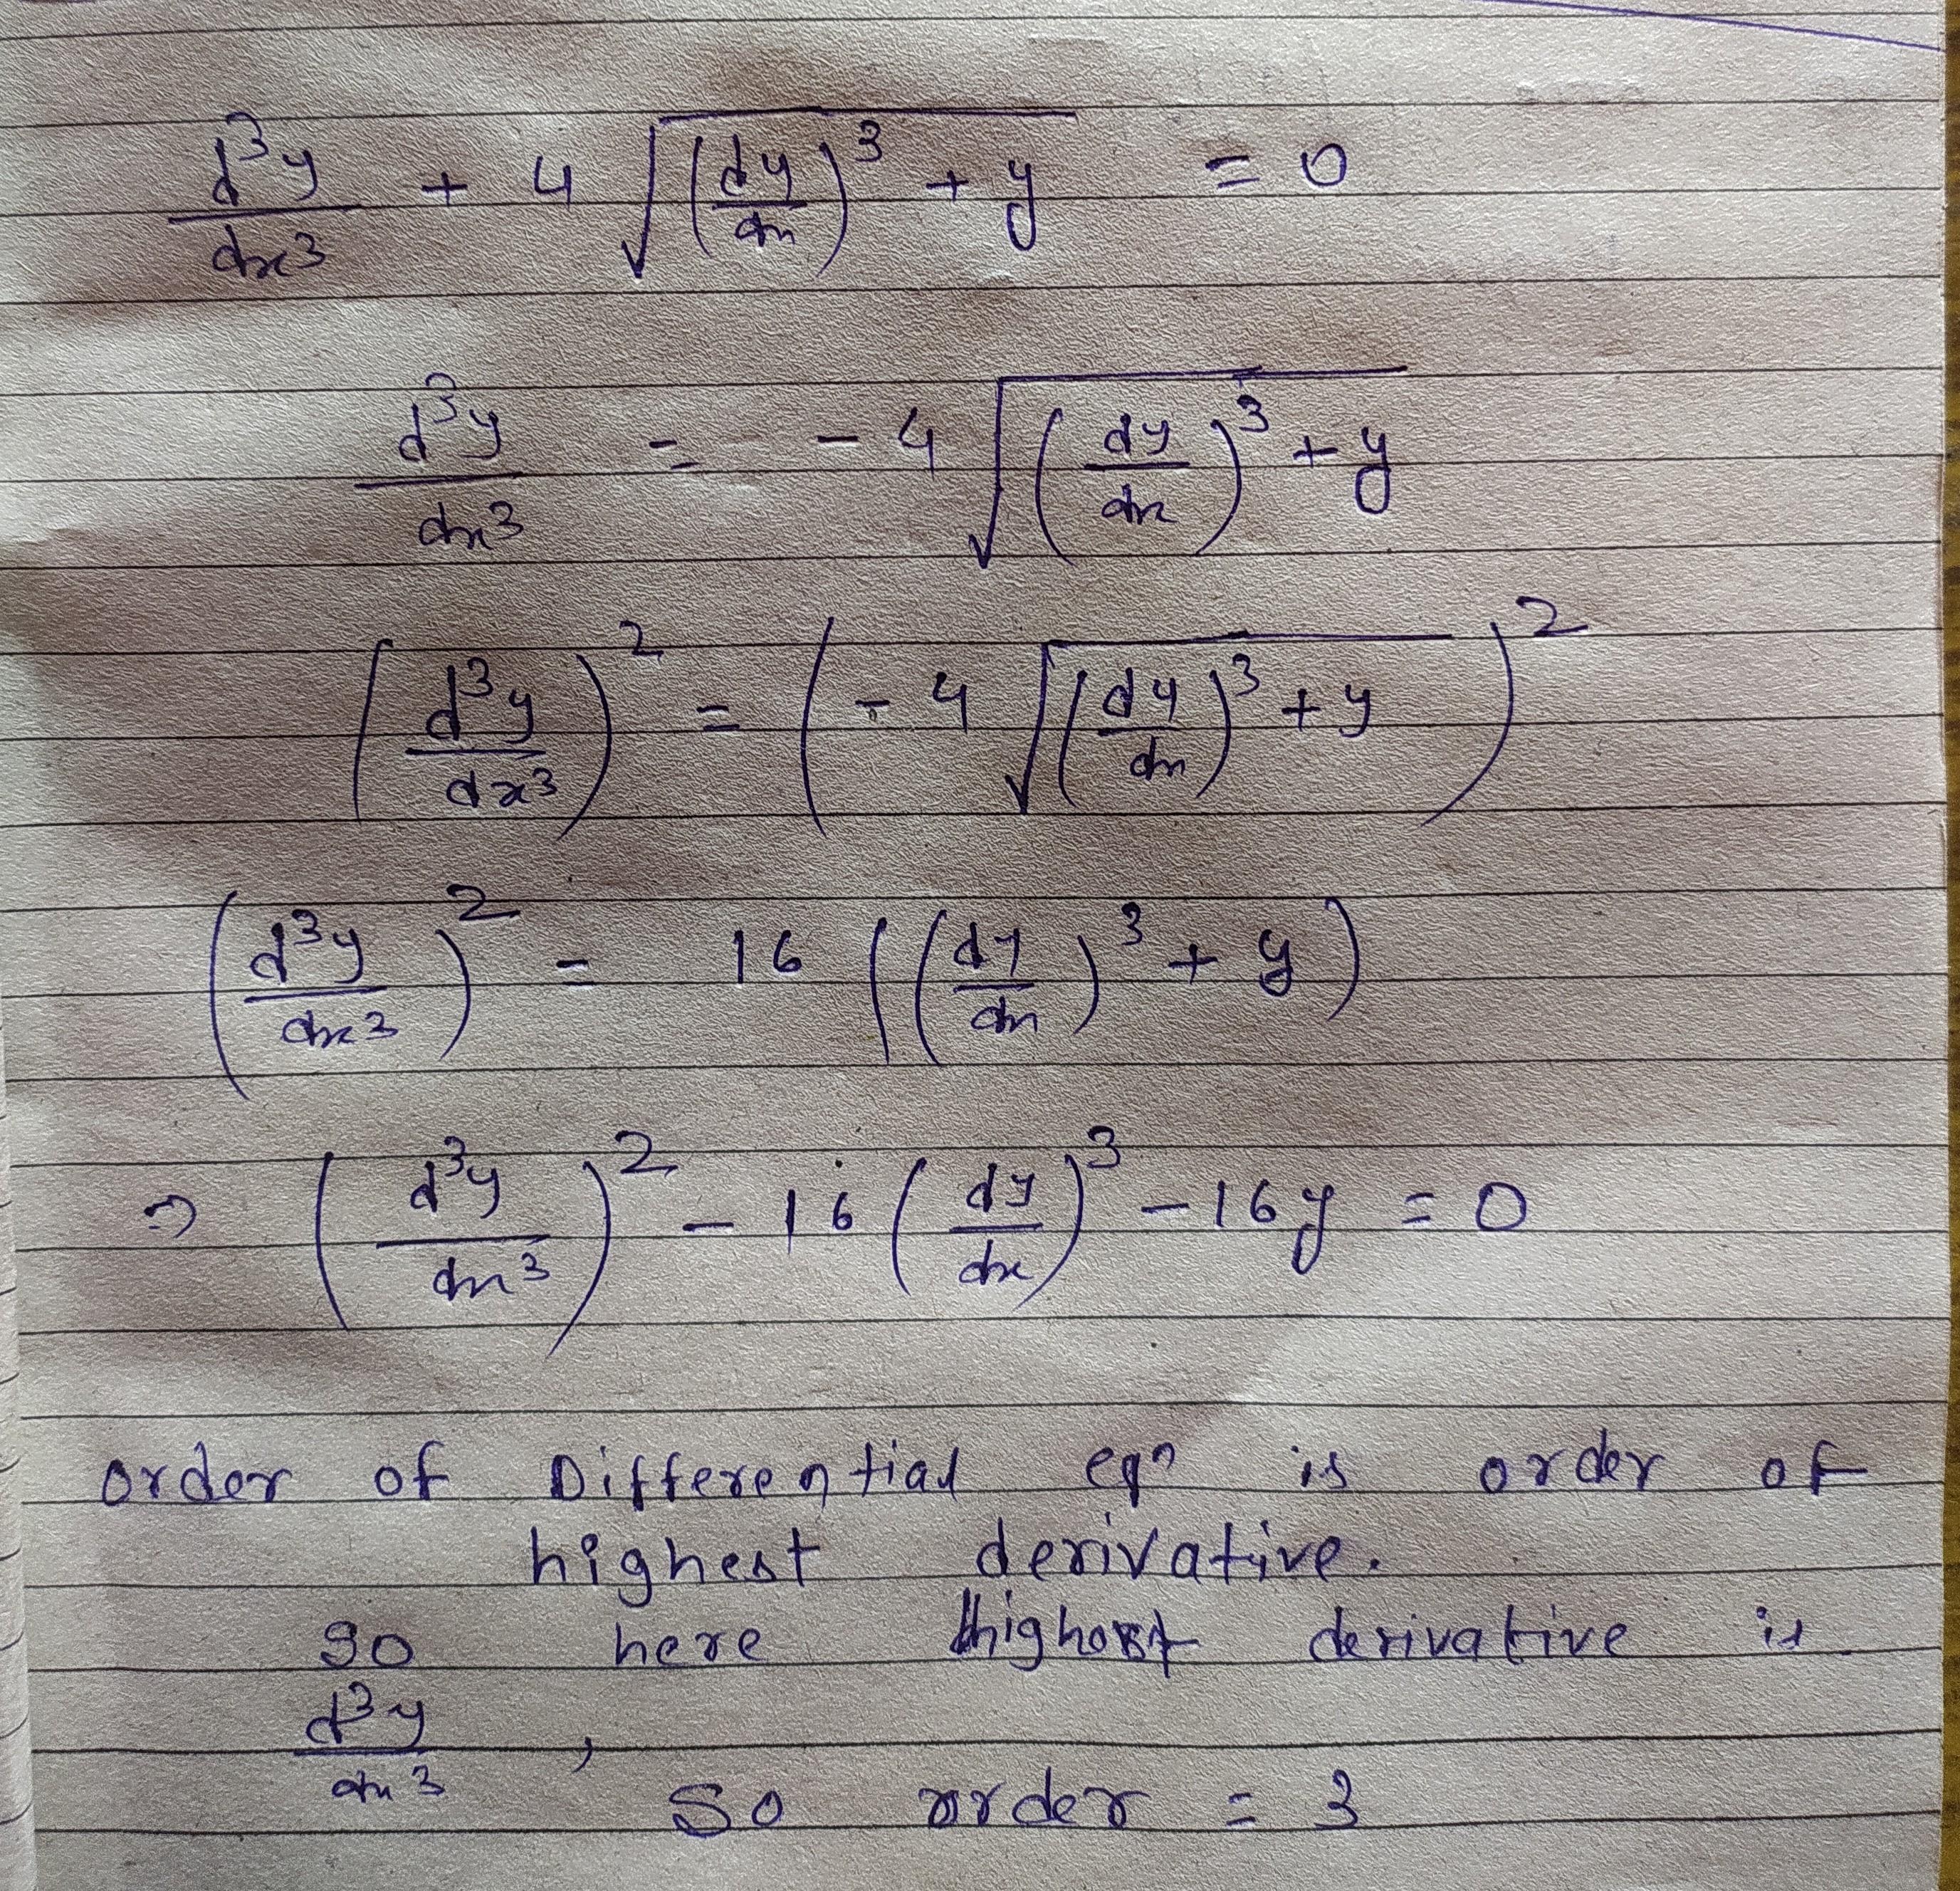 d³y/dx³ + 4 √((dy/dx)³ + y) = 0
d³y/dx³ = - 4 √((dy/dx)³ + y)
(d³y/dx³)² = (- 4 √((dy/dx)³ + y))²
(d³y/dx³)² = 16 ((dy/dx)³ + y)
⇒ (d³y/dx³)² - 16 (dy/dx)³ - 16y = 0
order of Differential eqn is order of
highest derivative.
so here highest derivative is
d³y/dx³ ,
So order = 3